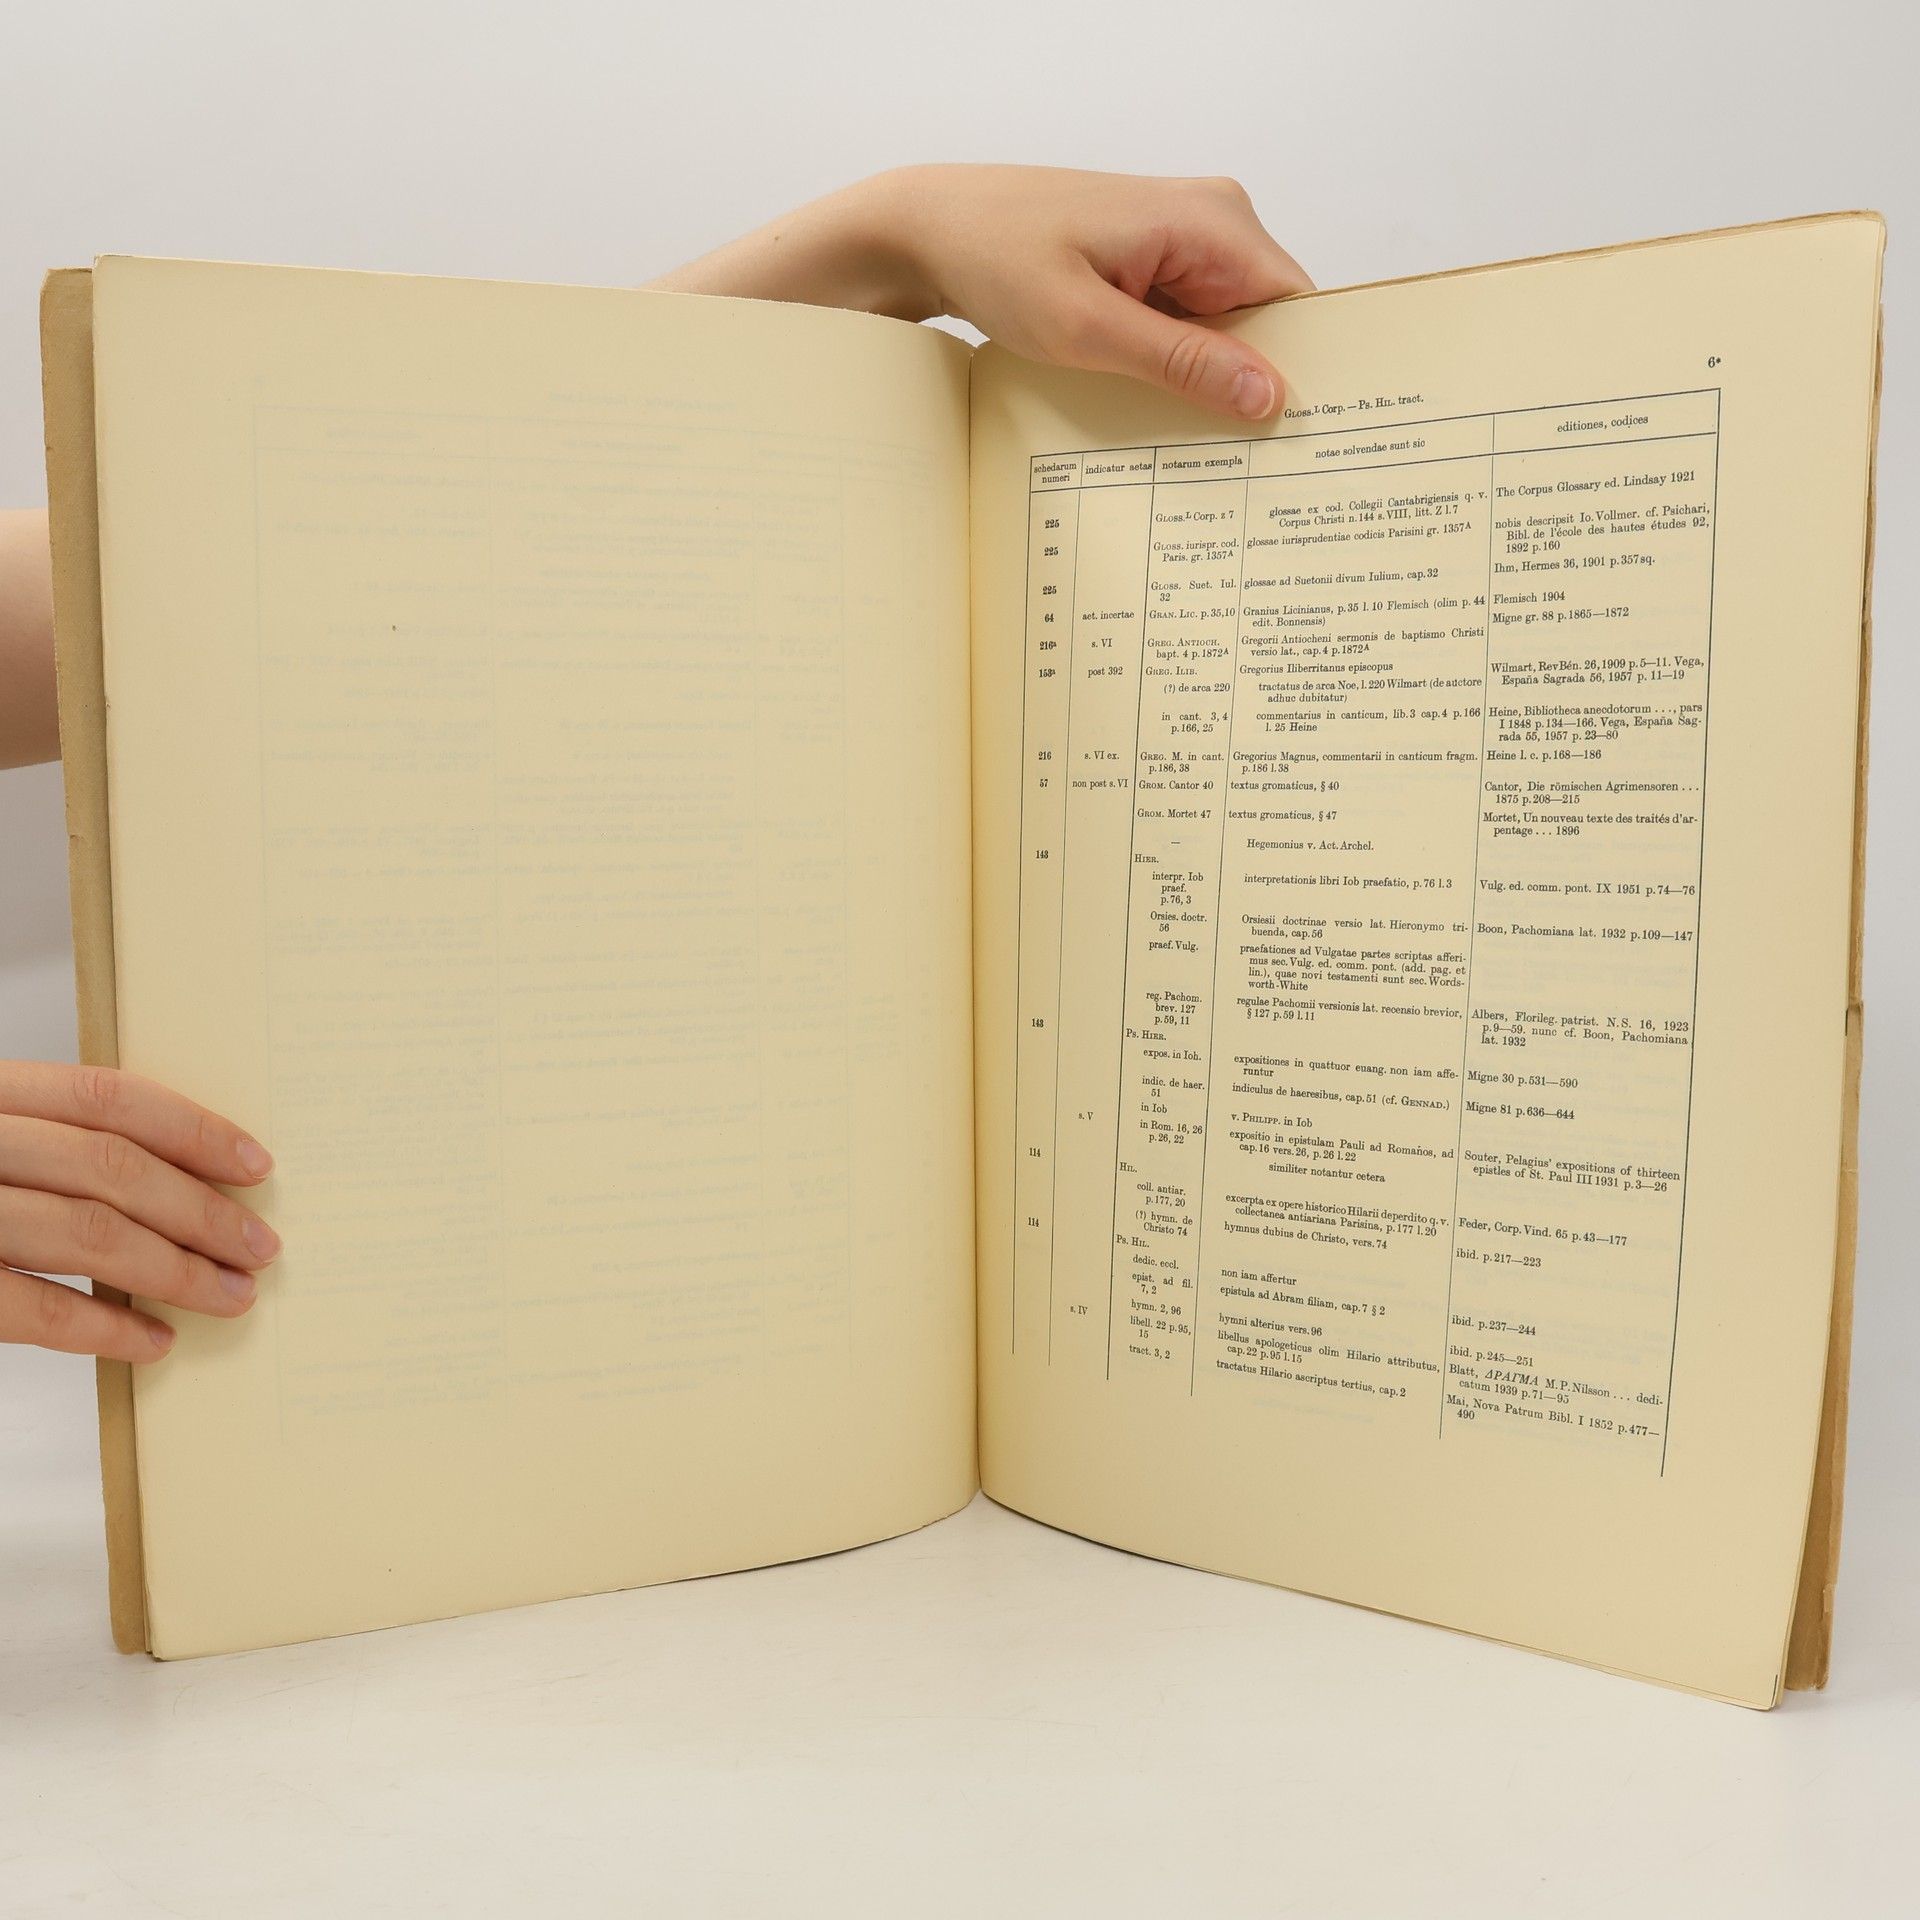 6*
Gloss.L Corp. — Ps. Hil. tract.
schedarum numeri | indicatur aetas | notarum exempla | notae solvendae sunt sic | editiones, codices
225 | Gloss.L Corp. z 7 | glossae ex cod. Collegii Cantabrigiensis q. v. | The Corpus Glossary ed. Lindsay 1921
Corpus Christi n. 144 s. VIII, litt. Z l. 7
225 | Gloss. iurispr. cod. | glossae iurisprudentiae codicis Parisini gr. 1357A | nobis descripsit Io. Vollmer. cf. Psichari,
Paris. gr. 1357A | Bibl. de l'école des hautes études 92,
1892 p. 160
225 | Gloss. Suet. Iul. | glossae ad Suetonii divum Iulium, cap. 32 | Ihm, Hermes 36, 1901 p. 357 sq.
32
64 | aet. incertae | Gran. Lic. p. 35, 10 | Granius Licinianus, p. 35 l. 10 Flemisch (olim p. 44 | Flemisch 1904
edit. Bonnensis)
216a | s. VI | Greg. Antioch. | Gregorii Antiocheni sermonis de baptismo Christi | Migne gr. 88 p. 1865—1872
bapt. 4 p. 1872A | versio lat., cap. 4 p. 1872A
153a | post 392 | Greg. Ilib. | Gregorius Iliberritanus episcopus
(?) de arca 220 | tractatus de arca Noe, l. 220 Wilmart (de auctore | Wilmart, RevBén. 26, 1909 p. 5—11. Vega,
adhuc dubitatur) | España Sagrada 56, 1957 p. 11—19
in cant. 3, 4 | commentarius in canticum, lib. 3 cap. 4 p. 166 | Heine, Bibliotheca anecdotorum . . ., pars
p. 166, 25 | l. 25 Heine | I 1848 p. 134—166. Vega, España Sag-
rada 55, 1957 p. 23—80
216 | s. VI ex. | Greg. M. in cant. | Gregorius Magnus, commentarii in canticum fragm. | Heine l. c. p. 168—186
p. 186, 38 | p. 186 l. 38
57 | non post s. VI | Grom. Cantor 40 | textus gromaticus, § 40 | Cantor, Die römischen Agrimensoren . . .
1875 p. 208—215
Grom. Mortet 47 | textus gromaticus, § 47 | Mortet, Un nouveau texte des traités d'ar-
pentage . . . 1896
— | Hegemonius v. Act. Archel.
143 | Hier.
interpr. Iob | interpretationis libri Iob praefatio, p. 76 l. 3 | Vulg. ed. comm. pont. IX 1951 p. 74—76
praef.
p. 76, 3
Orsies. doctr. | Orsiesii doctrinae versio lat. Hieronymo tri- | Boon, Pachomiana lat. 1932 p. 109—147
56 | buenda, cap. 56
praef. Vulg. | praefationes ad Vulgatae partes scriptas afferi-
mus sec. Vulg. ed. comm. pont. (add. pag. et
lin.), quae novi testamenti sunt sec. Words-
worth-White
reg. Pachom. | regulae Pachomii versionis lat. recensio brevior, | Albers, Florileg. patrist. N. S. 16, 1923
brev. 127 | § 127 p. 59 l. 11 | p. 9—59. nunc cf. Boon, Pachomiana
p. 59, 11 | lat. 1932
143 | Ps. Hier.
expos. in Ioh. | expositiones in quattuor euang. non iam affe- | Migne 30 p. 531—590
runtur
indic. de haer. | indiculus de haeresibus, cap. 51 (cf. Gennad.) | Migne 81 p. 636—644
51
s. V | in Iob | v. Philipp. in Iob
in Rom. 16, 26 | expositio in epistulam Pauli ad Romanos, ad | Souter, Pelagius' expositions of thirteen
p. 26, 22 | cap. 16 vers. 26, p. 26 l. 22 | epistles of St. Paul III 1931 p. 3—26
similiter notantur cetera
114 | Hil.
coll. antiar. | excerpta ex opere historico Hilarii deperdito q. v. | Feder, Corp. Vind. 65 p. 43—177
p. 177, 20 | collectanea antiariana Parisina, p. 177 l. 20
(?) hymn. de | hymnus dubius de Christo, vers. 74 | ibid. p. 217—223
Christo 74
114 | Ps. Hil.
dedic. eccl. | non iam affertur
epist. ad fil. | epistula ad Abram filiam, cap. 7 § 2 | ibid. p. 237—244
7, 2
s. IV | hymn. 2, 96 | hymni alterius vers. 96 | ibid. p. 245—251
libell. 22 p. 95, | libellus apologeticus olim Hilario attributus, | Blatt, ΔΡΑΓΜΑ M. P. Nilsson . . . dedi-
15 | cap. 22 p. 95 l. 15 | catum 1939 p. 71—95
tract. 3, 2 | tractatus Hilario ascriptus tertius, cap. 2 | Mai, Nova Patrum Bibl. I 1852 p. 477—
490